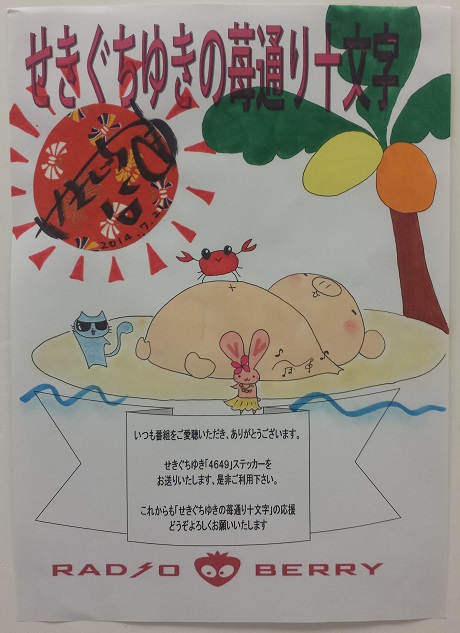 せきぐちゆきの苺通り十文字
2014.7.21
いつも番組をご愛聴いただき、ありがとうございます。
せきぐちゆき「4649」ステッカーを
お送りいたします、是非ご利用下さい。
これからも「せきぐちゆきの苺通り十文字」の応援
どうぞよろしくお願いいたします
RADIO BERRY